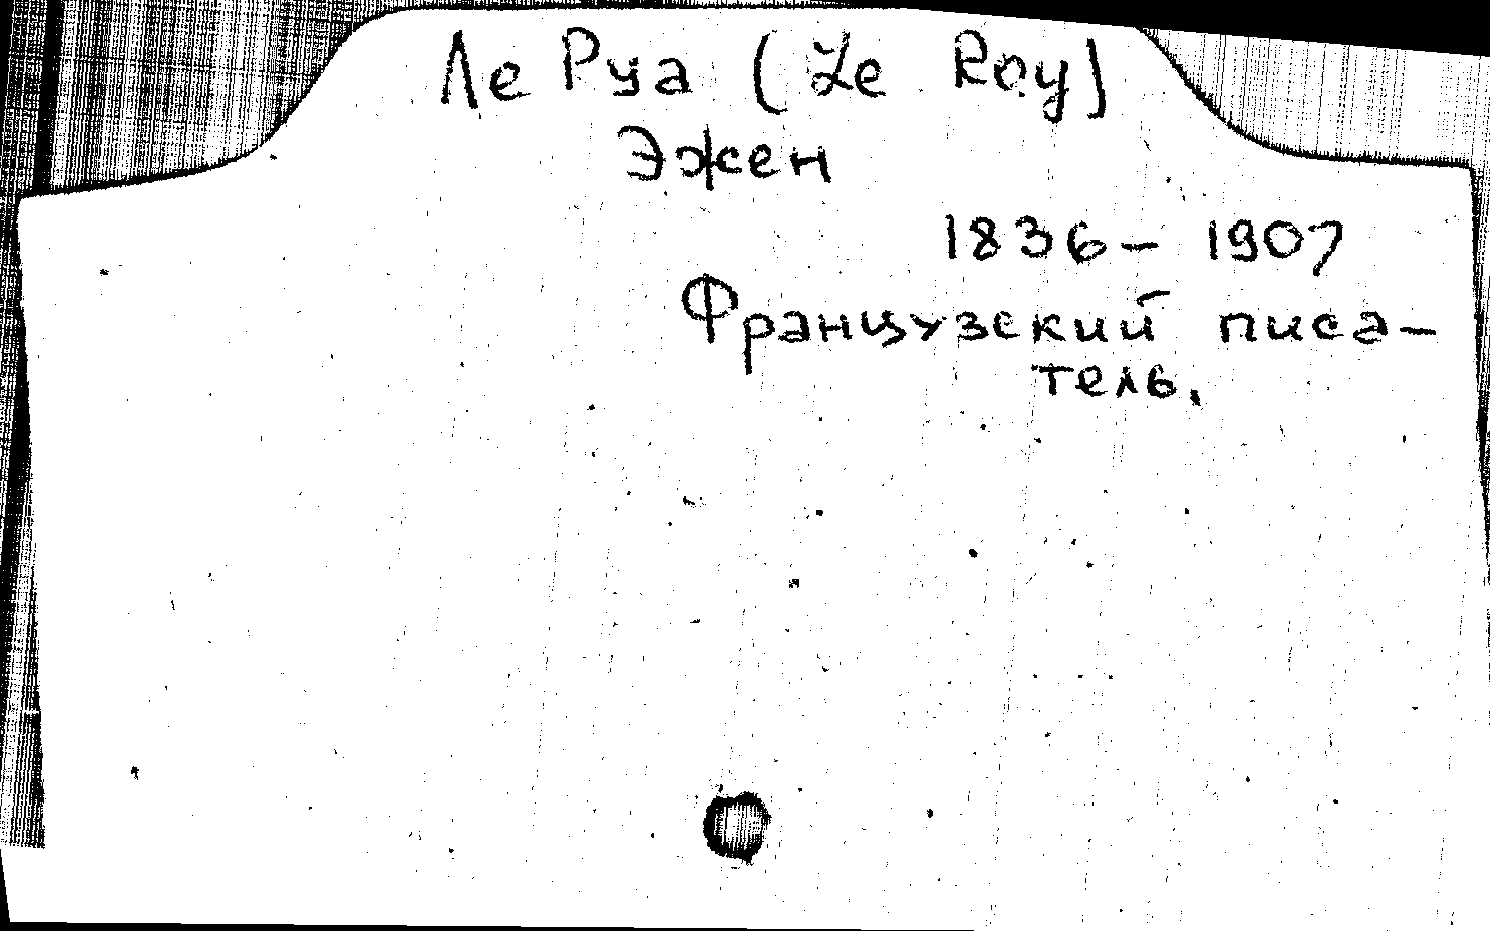 Ле Руа (Le Roy)
Эжен
1836 – 1907
Французский писа-
тель.